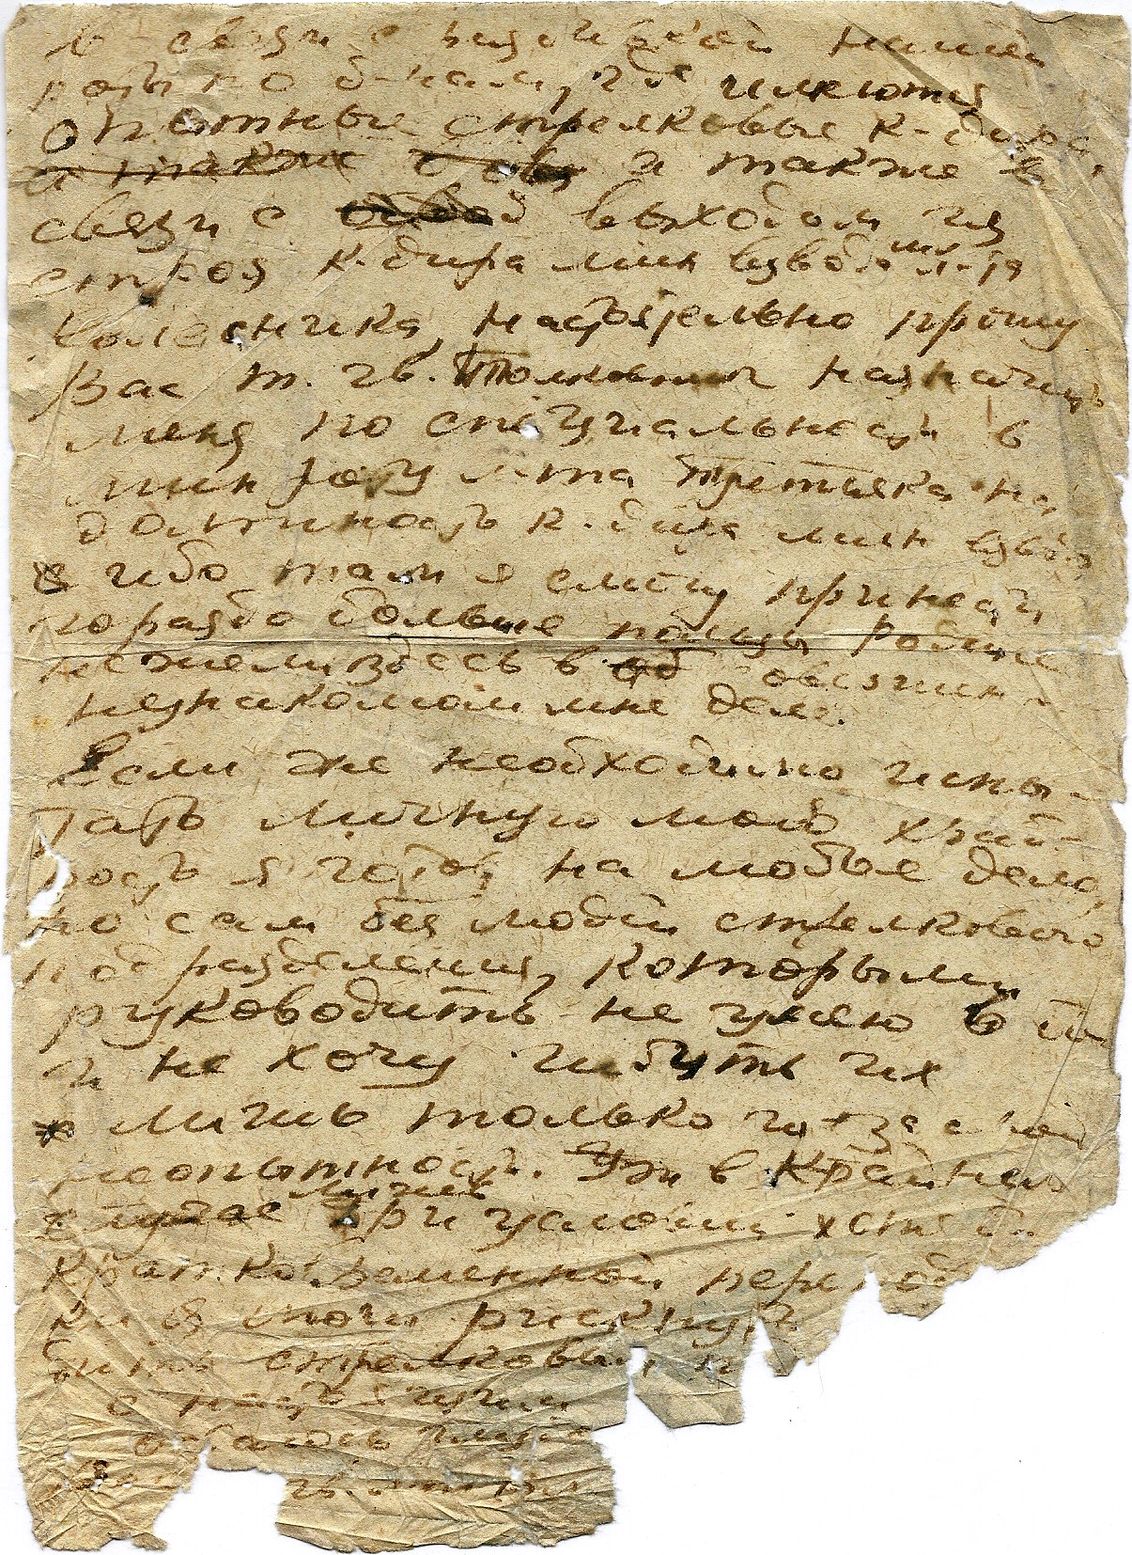 В связи с разбивкой нашей
роты по б-нам, где имеются
опытные стрелковые к-диры,
а также в
связи с выходом из
строя к-дира мин взвода мл. л-та
Колесника, настоятельно прошу
Вас т. гв. Полковник назначить
меня по специальности в
мин роту л-та Третьяка на
должность к-дира мин взвода
ибо там я смогу принести
гораздо больше пользы Родине
нежели здесь в совершен-
незнакомом мне деле.
Если же необходимо испы-
тать личную мою храб-
рость я готов на любые дела,
но сам без людей стрелкового
подразделения, которыми
руководить не умею в
и не хочу губить их
лишь только из-за своей
неопытности. в крайнем
случае лишь при условии хотя бы
кратковременной
ки я могу рискнуть
быть стрелковым
с настоящим
остаюсь